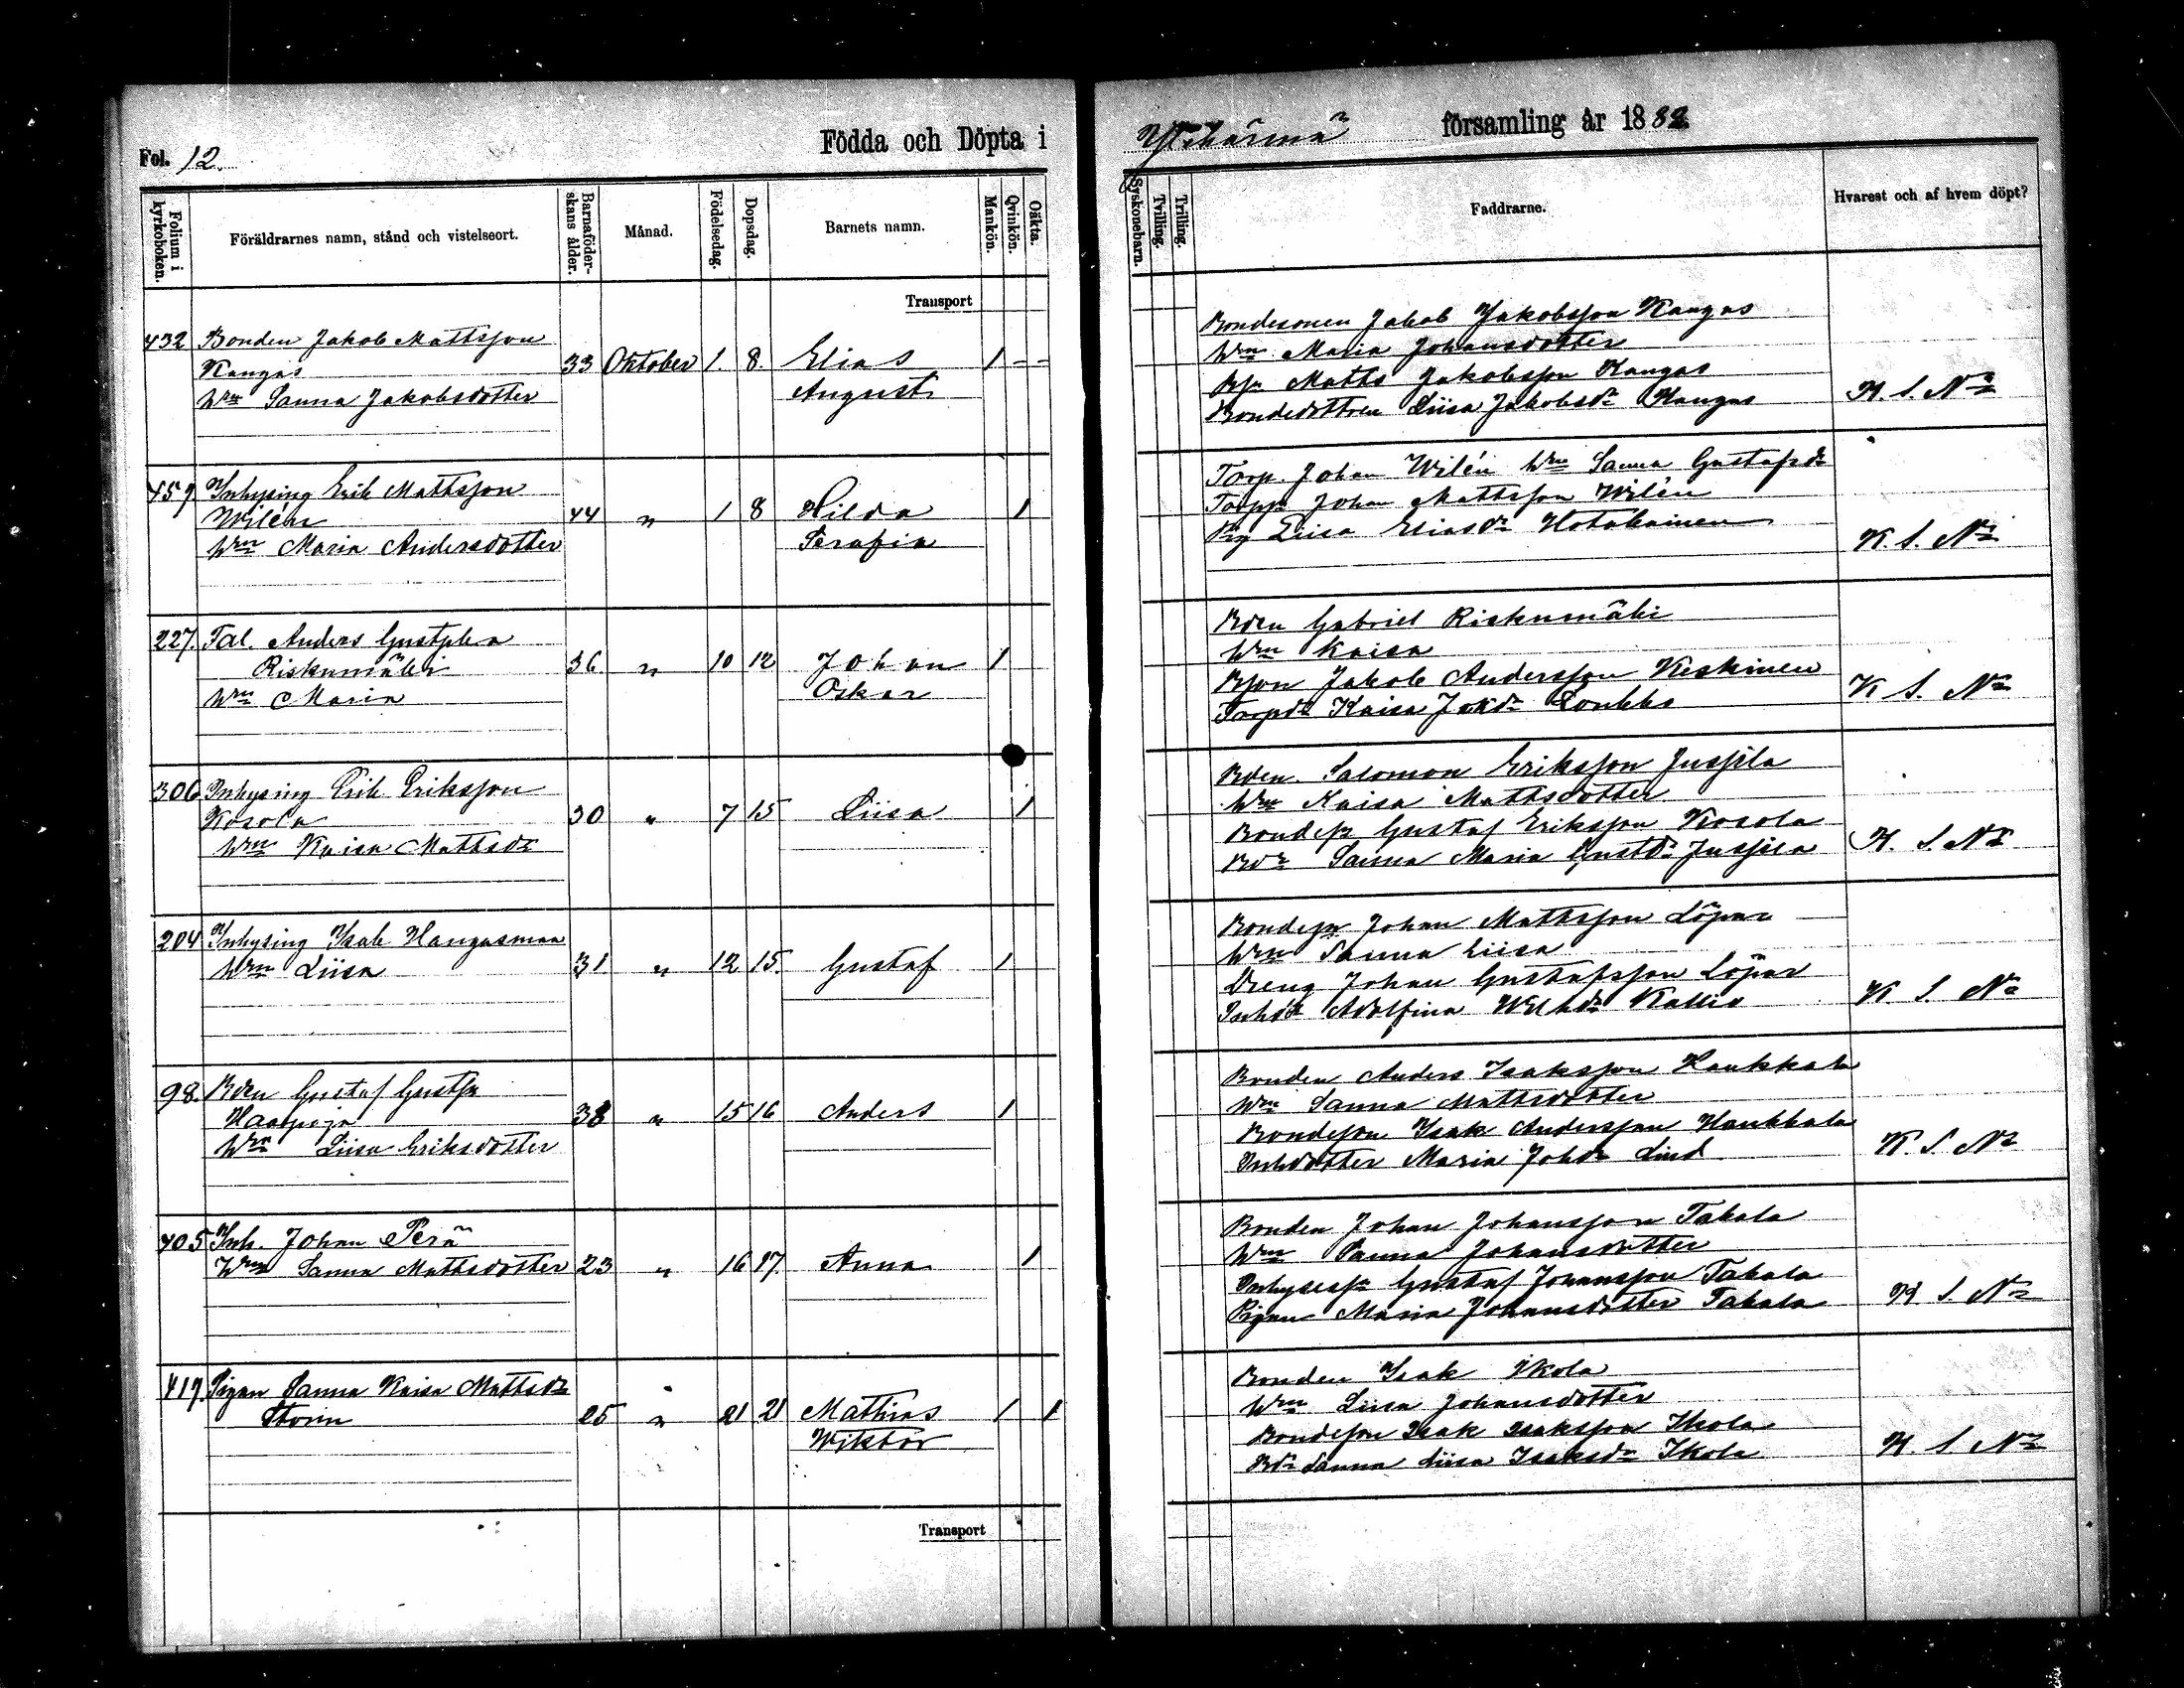 Fol. 12.
Födda och Döpta i
Ylihärmä församling år 1882
Folium i kyrkoboken.
Föräldrarnes namn, stånd och vistelseort.
Barnaföderskans ålder.
Månad.
Födelsedag.
Dopsdag.
Barnets namn.
Mankön.
Qvinkön.
Oäkta.
Syskonebarn.
Tvilling.
Trilling.
Faddrarne.
Hvarest och af hvem döpt?
Transport
432 Bonden Jakob Mattsson
Kangas 33 Oktober 1. 8. Elias 1 - -
hrn Sanna Jakobsdotter August
Bondesonen Jakob Jakobsson Kangas
hrn Maria Johansdotter
Matts Jakobsson Kangas
Bondedottren Liisa Jakobsdr Kangas
K. S. Nr
457 Inhysing Erik Mattsson
Wilén 44 " 1 8 Hilda 1
hrn Maria Andersdotter Serafia
Torp. Johan Wilén hrn Sanna Gustafsdr
Johan Mattsson Wilén
Pig Liisa Eliasdr Hotakainen
K. S. Nr
227. Tal. Anders Gustfsson
Riskumäki 36 " 10 12 Johan 1
hrn Maria Oskar
Bden Gabriel Riskumäki
hrn Kaisa
Bson Jakob Andersson Keskinen
Torpdr Kaisa Jakdr Loukko
K S. Nr
306 Inhysing Erik Eriksson
Kosola 30 " 7 15 Liisa 1
hrn Kaisa Mattsdr
Bden. Salomon Eriksson Jussila
hrn Kaisa Mattsdotter
Bondes Gustaf Eriksson Kosola
Bdr Sanna Maria Gustdr Jussila
K. S. Nr
204 Inhysing Isak Hangasmaa
hrn Liisa 31. " 12 15. Gustaf 1
Bondesn Johan Mattsson Löpar
hrn Sanna Liisa
Dreng Johan Gustafsson Löpar
Inhdr Adolfina Wilhdr Kallio
K. S. Nr
98. Bden Gustaf Gustfsn
Haapoja 38 " 15 16 Anders 1
hrn Liisa Eriksdotter
Bonden Anders Isaksson Haukkala
hrn Sanna Mattsdotter
Bondeson Isak Andersson Haukkala
Inhdotter Maria Johdr Lind
K. S. Nr
405 Inh. Johan Perä
hrn Sanna Mattsdotter 23 " 16 17. Anna 1
Bonden Johan Johansson Takala
hrn Sanna Johansdotter
Gustaf Johansson Takala
Pigan Maria Johansdotter Takala
K S. Nr
419. Pigan Sanna Kaisa Mattsdr
Storm 25 " 21 21 Mathias 1 1
Wiktor
Bonden Isak Ikola
hrn Liisa Johansdotter
Bondeson Isak Isaksson Ikola
Bdr Sanna Liisa Isaksdr Ikola
K. S. Nr
Transport